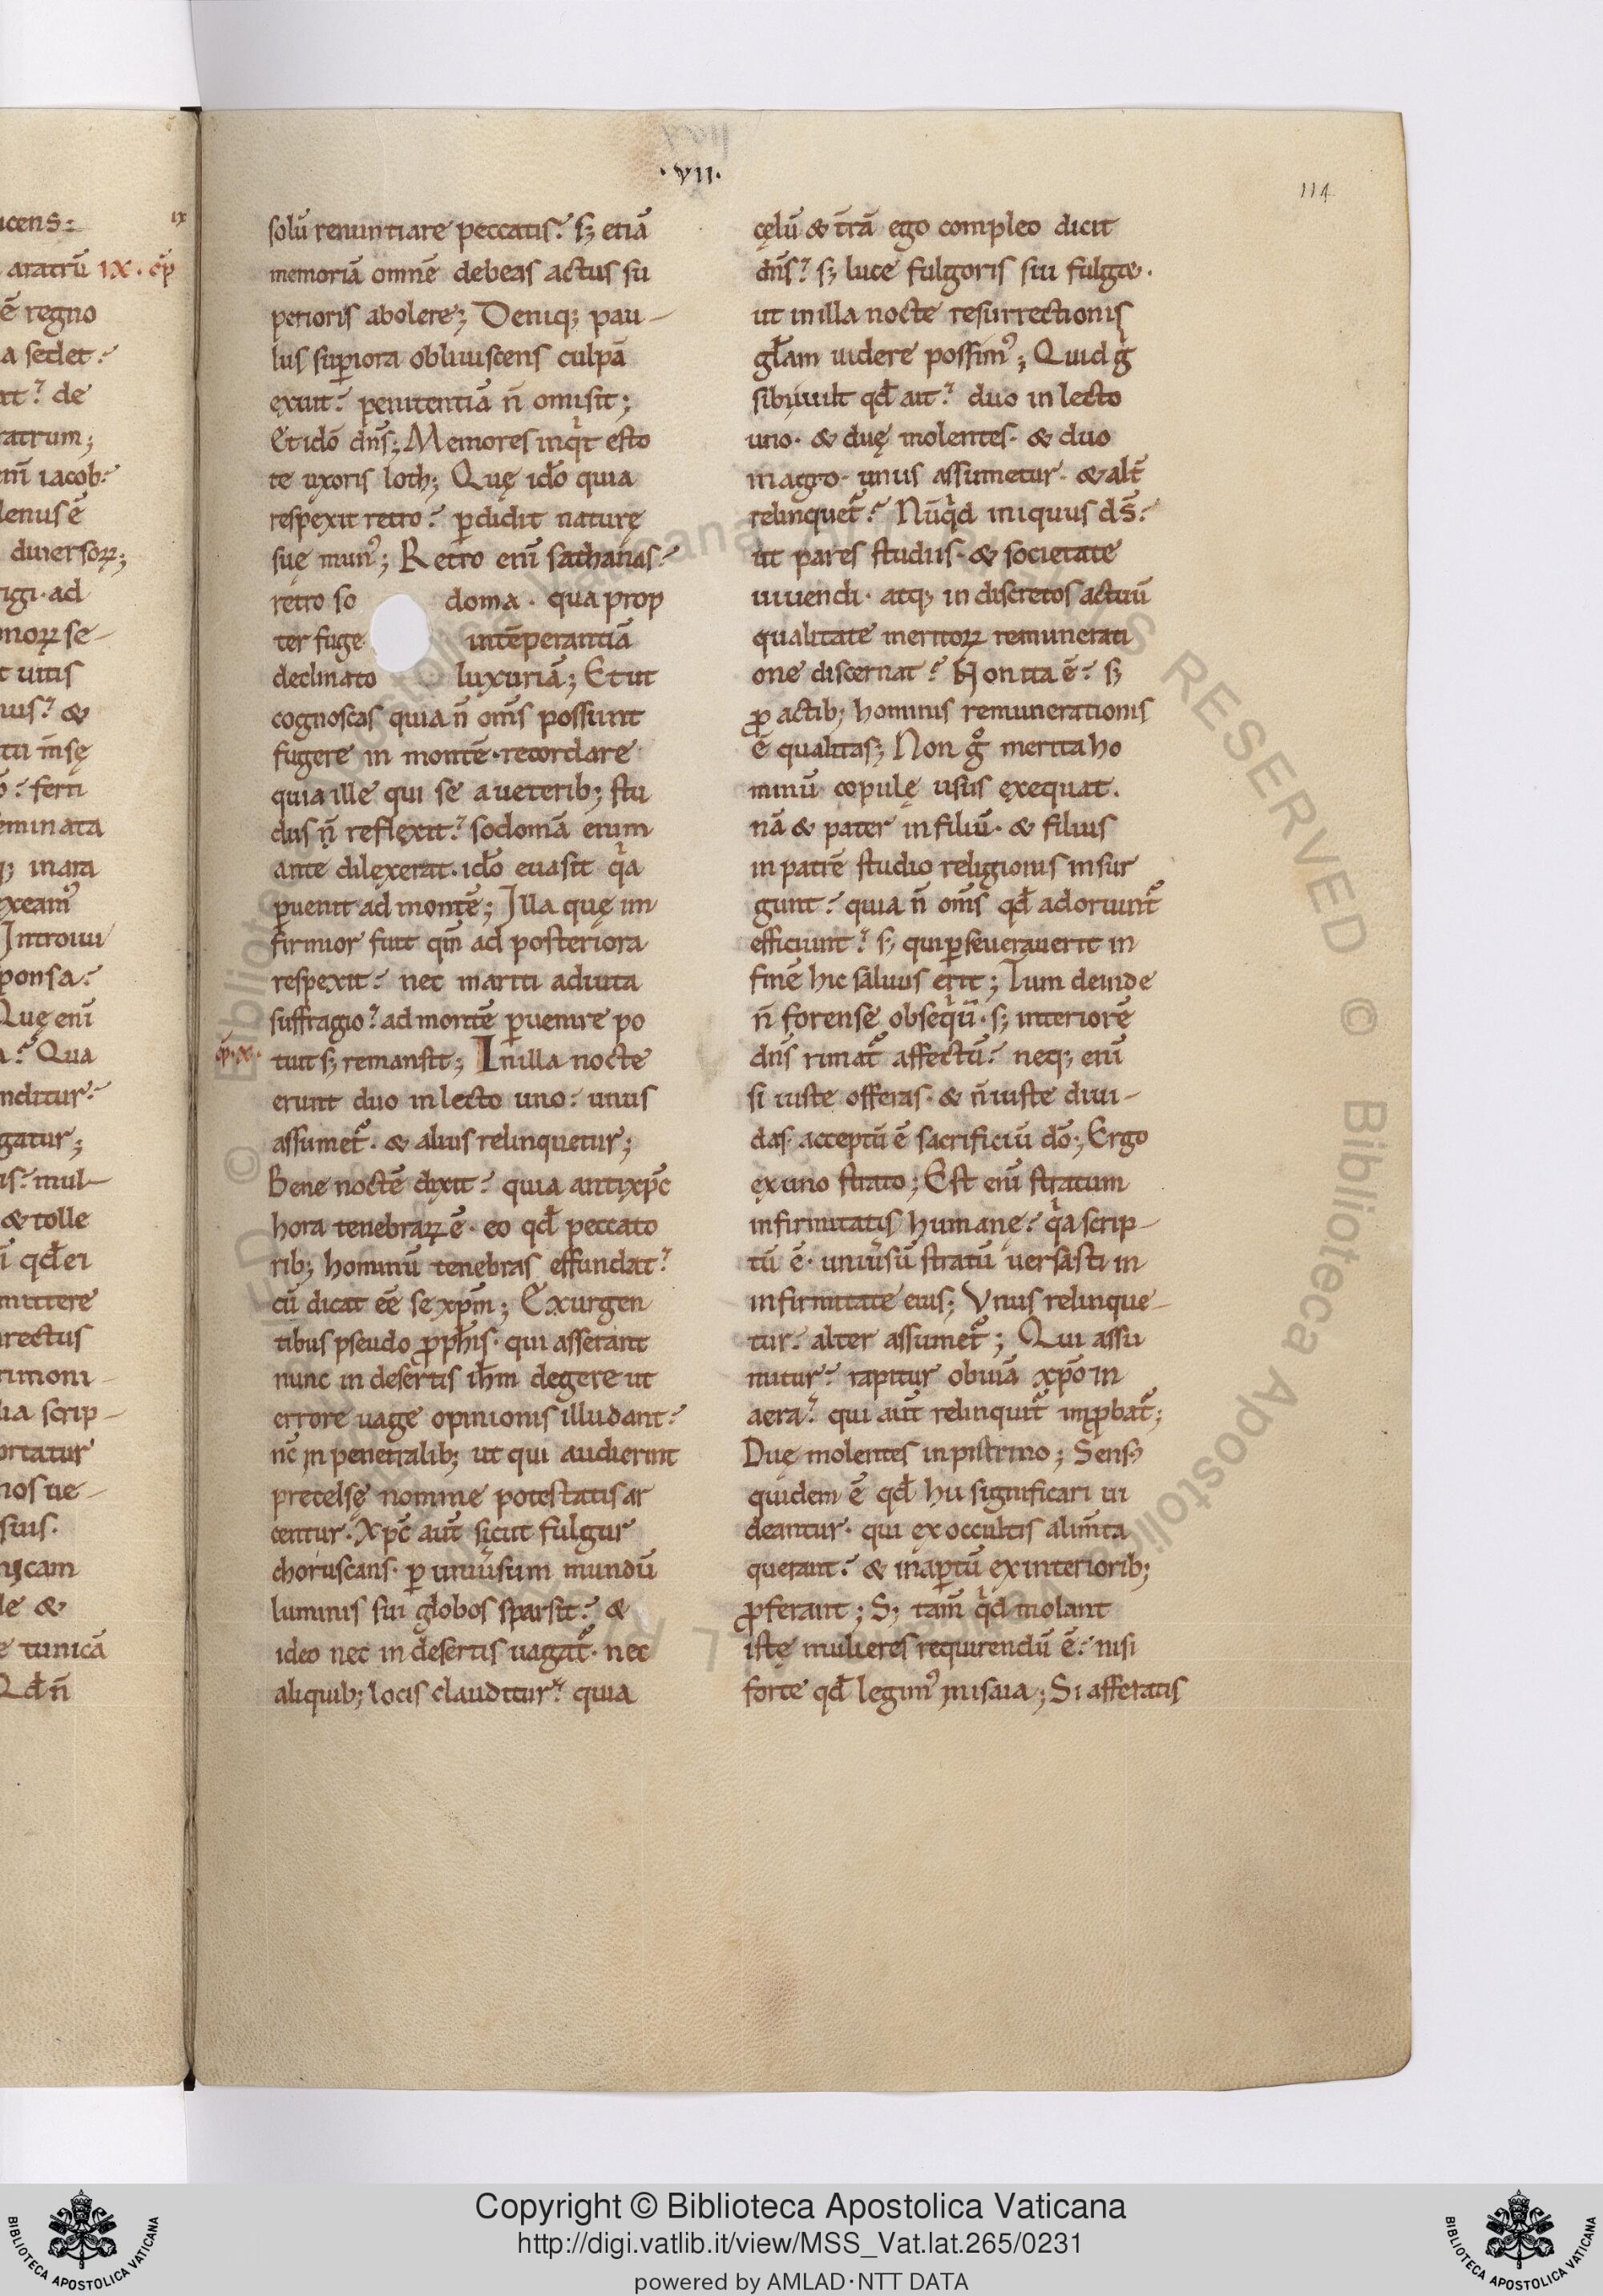 ·VII·
114
solū renuntiare peccatis? s; etiā
memoriā omnē debeas actus su
perioris abolere; Deniq; pau-
lus supiora obliuiscens culpā
exuit? penitentiā n̄ omisit;
Et idō dn̄s; Memores inqͥt esto
te uxoris loth; Quę idō quia
respexit retro? pdidit naturę
suę mun᾽; Retro enī sathanas?
retro so doma· qua prop
ter fuge intēperantiā
declinato luxuriā; Et ut
cognoscas quia n̄ om̄s possunt
fugere in montē· recordare
quia ille qui se a ueterib; stu
diis n̄ reflexit? sodomā eium
ante dilexerat· idō euasit qͥa
puenit ad montē; Illa quę in
firmior fuit qm̄ ad posteriora
respexit? nec mariti adiuta
suffragio? ad montē puenire po
cp̄·X· tuit s; remansit; In illa nocte
erunt duo in lecto uno? unus
assumet᷑· & alius relinquetur;
Bene noctē dixit? quia antixp̄c
hora tenebraꝝ ē· eo qd̄ peccato
rib; hominū tenebras effundat?
cū dicat eē se xp̄m; Exurgen
tibus pseudo ꝓph̄is· qui asserant
nunc in desertis ih̄m degere ut
errore uage opinionis illudant?
nc̄ in penetralib; ut qui audierint
precelsę nomine potestatis ar
centur· Xp̄c aut̄ sicut fulgur
choruscans· p uniūsum mundū
luminis sui globos sparsit? &
ideo nec in desertis uagat᷑· nec
aliquib; locis clauditur? quia
cęlū & tr̄ā ego compleo dicit
dn̄s? s; luce fulgoris sui fulg&·
ut in illa nocte resurrectionis
gl̄am uidere possim᾽; Quid gͥ
sibi uult qd̄ ait? duo in lecto
uno· & duę molentes· & duo
in agro· unus assumetur· & alt̄
relinquet᷑? Nūqͥd iniquus ds̄?
ut pares studiis· & societate
uiuendi· atq; in discretos actuū
qualitate meritoꝝ remunerati
one discernat? Non ita ē? s;
ꝓ actib; hominis remunerationis
ē qualitas; Non gͦ merita ho
minū copulę usus exequat·
nā & pater in filiū· & filius
in patrē studio religionis insur
gunt? quia n̄ om̄s qd̄ adoriunt᷑
efficiunt? s; qui pseuerauerit in
finē hic saluus erit; Tum deinde
n̄ forense obseqͥū· s; interiorē
dn̄s rimat᷑ affectū? neq; enī
si iuste offeras· & n̄ iuste diui-
das· acceptū ē sacrificiū dō; Ergo
ex uno strato; Est enī stratum
infirmitatis humanę? qͥa scrip-
tū ē· uniūsū stratū uersasti in
infirmitate eius; Vnus relinque-
tur? alter assumet᷑; Qui assu
mitur? rapitur obuiā xp̄o in
aera? qui aut̄ relinquit᷑ inꝓbat᷑;
Duę molentes in pistrino; Sens᾽
quidem ē qd̄ hii significari ui
deantur· qui ex occultis alim̄ta
querant? & in aptū ex interiorib;
ꝓferant; S; tam̄ qͥd molant
istę mulieres requirendū ē? nisi
forte qd̄ legim᾽ in isaia; Si afferatis
ucens:
IX
aratrū IX· cp̄
ē regno
a sedet?
at? de
ratrum;
enī iacob?
lenus ē
diuersoꝝ;
rigi· ad
moꝝ se-
t uitis
ius? &
? ferri
eminata
q; in ara
exeam᾽
Introiui
ponsa?
Quę enī
a? Qua
nditur?
gatur;
is? mul-
& tolle
ī qd̄ ei
mittere
rectus
rimoni-
lia scrip-
ortatur
nos ue-
suis·
le &
e tunicā
Qd̄ n̄
© Biblioteca Apostolica Vaticana
ALL RIGHTS RESERVED
Copyright © Biblioteca Apostolica Vaticana
http://digi.vatlib.it/view/MSS_Vat.lat.265/0231
powered by AMLAD·NTT DATA
BIBLIOTECA APOSTOLICA VATICANA
BIBLIOTECA APOSTOLICA VATICANA